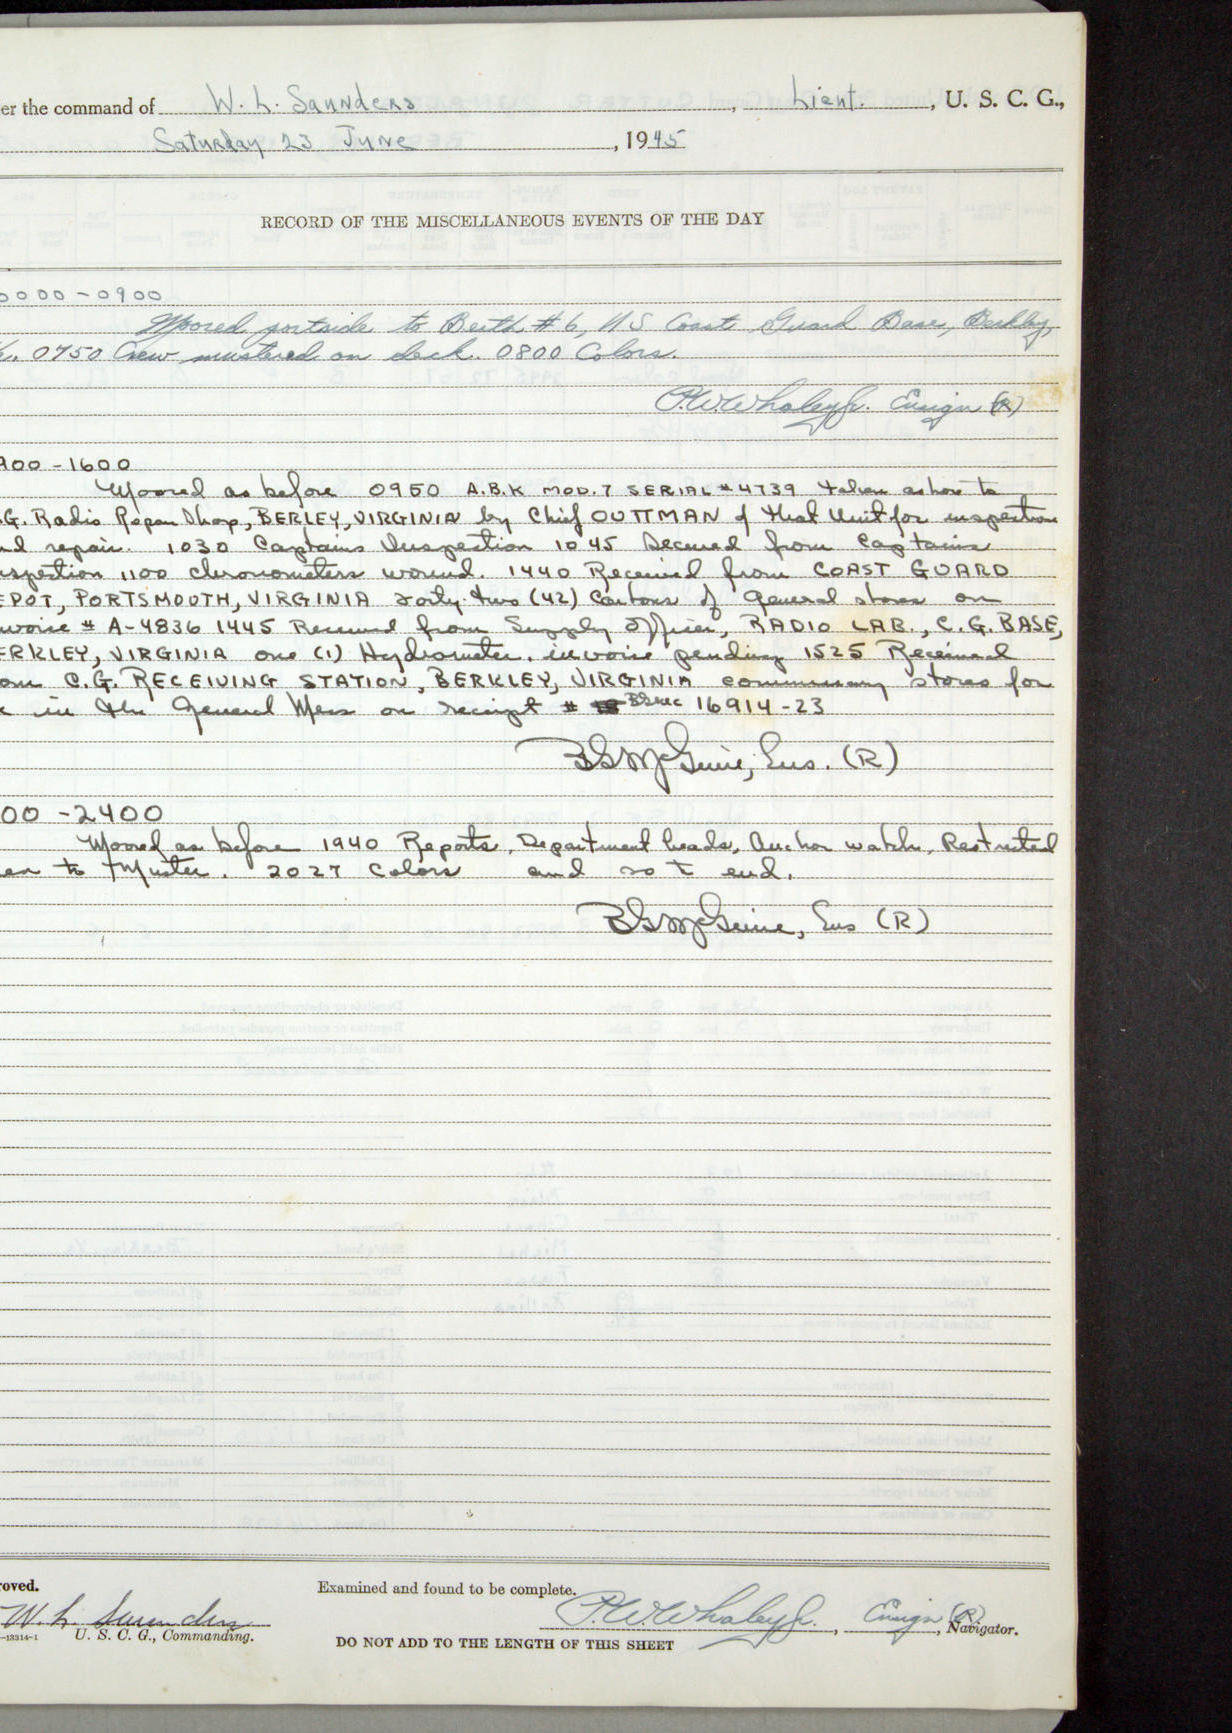 er the command of W. L. Saunders, Lieut., U. S. C. G.,
Saturday 23 June, 1945
RECORD OF THE MISCELLANEOUS EVENTS OF THE DAY
0000-0900
Moored portside to Berth #6, US Coast Guard Base, Berkley,
0750 Crew mustered on deck. 0800 Colors.
P.W. Whaley Jr. Ensign (R)
900-1600
Moored as before 0950 A.B.K MOD. 7 SERIAL #4739 taken ashore to
.G. Radio Repair Shop, BERLEY, VIRGINIA by Chief OUTTMAN of that Unit for inspection
nd repair. 1030 Captains Inspection 1045 Secured from Captains
nspection 1100 chronometers wound. 1440 Received from COAST GUARD
EPOT, PORTSMOUTH, VIRGINIA forty-two (42) Cartons of general stores on
nvoice # A-4836 1445 Received from Supply Officer, RADIO LAB., C.G. BASE,
ERKLEY, VIRGINIA one (1) Hydrometer, invoice pending 1525 Received
om C.G. RECEIVING STATION, BERKLEY, VIRGINIA commissary stores for
e in the General Mess on receipt # BSMcG 16914-23
BSMcGuire, Ens. (R)
00-2400
Moored as before 1940 Reports, Department heads, Anchor watch, Restricted
en to Muster. 2027 Colors and so to end.
BSMcGuire, Ens (R)
roved.
Examined and found to be complete.
W. L. Saunders
P.W. Whaley Jr., Ensign (R), Navigator.
-13314-1 U. S. C. G., Commanding.
DO NOT ADD TO THE LENGTH OF THIS SHEET